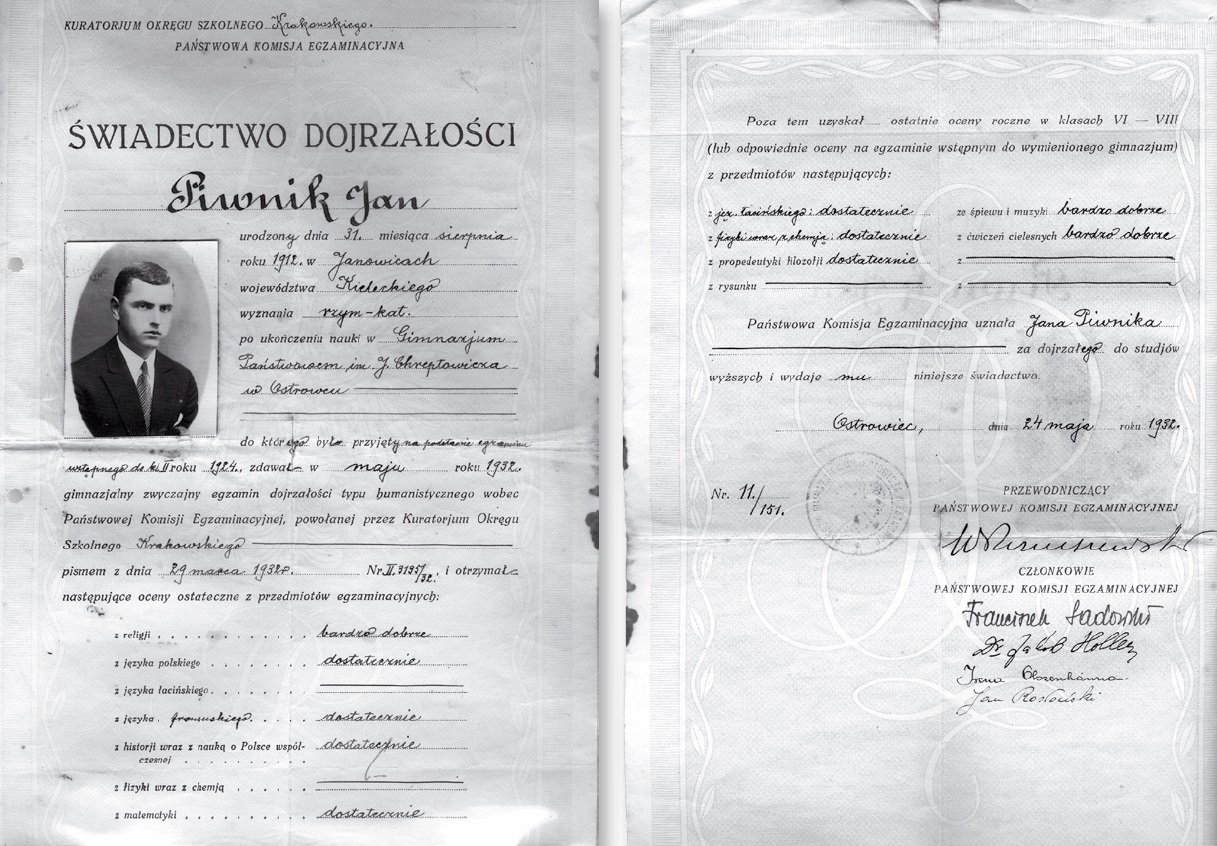 KURATORJUM OKRĘGU SZKOLNEGO Krakowskiego.
PAŃSTWOWA KOMISJA EGZAMINACYJNA
ŚWIADECTWO DOJRZAŁOŚCI
Piwnik Jan
urodzony dnia 31. miesiąca sierpnia
roku 1912. w Janowicach
województwa Kieleckiego
wyznania rzym-kat.
po ukończeniu nauki w Gimnazjum
Państwowem im. J. Chreptowicza
w Ostrowcu
do którego był przyjęty na podstawie egzaminu
wstępnego do kl. II roku 1924., zdawał w maju roku 1932.
gimnazjalny zwyczajny egzamin dojrzałości typu humanistycznego wobec
Państwowej Komisji Egzaminacyjnej, powołanej przez Kuratorjum Okręgu
Szkolnego Krakowskiego
pismem z dnia 29 marca 1932r. Nr. II. 3195/32. i otrzymał
następujące oceny ostateczne z przedmiotów egzaminacyjnych:
z religji . . . . . . . . . . . bardzo dobrze
z języka polskiego . . . . . . dostatecznie
z języka łacińskiego . . . . . .
z języka francuskiego . . . . . dostatecznie
z historji wraz z nauką o Polsce współ- dostatecznie
czesnej . . . . . . . . .
z fizyki wraz z chemją . . . . .
z matematyki . . . . . . . . . dostatecznie
Poza tem uzyskał ..... ostatnie oceny roczne w klasach VI — VIII
(lub odpowiednie oceny na egzaminie wstępnym do wymienionego gimnazjum)
z przedmiotów następujących:
z jęz. łacińskiego: dostatecznie ze śpiewu i muzyki bardzo dobrze
z fizyki wraz z chemją: dostatecznie z ćwiczeń cielesnych bardzo dobrze
z propedeutyki filozofji dostatecznie z
z rysunku z
Państwowa Komisja Egzaminacyjna uznała Jana Piwnika
za dojrzałego do studjów
wyższych i wydaje mu niniejsze świadectwo.
Ostrowiec, dnia 24 maja roku 1932.
Nr. 11./151.
PRZEWODNICZĄCY
PAŃSTWOWEJ KOMISJI EGZAMINACYJNEJ
CZŁONKOWIE
PAŃSTWOWEJ KOMISJI EGZAMINACYJNEJ
Franciszek Sadowski
Dr Jakób Holler
Irena
Jan